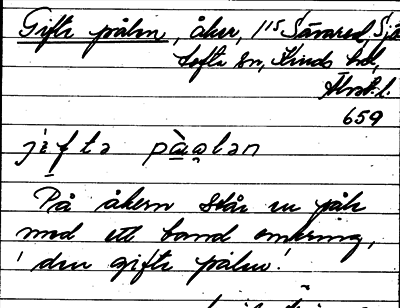 Gifte pålen, åker, 1¹⁵ Sävared, Sjö
tofte sn, Kinds hd,
Älvsb. l.
659
jifte pàalen
På åkern står en påle
med ett band omkring,
den gifte pålen.